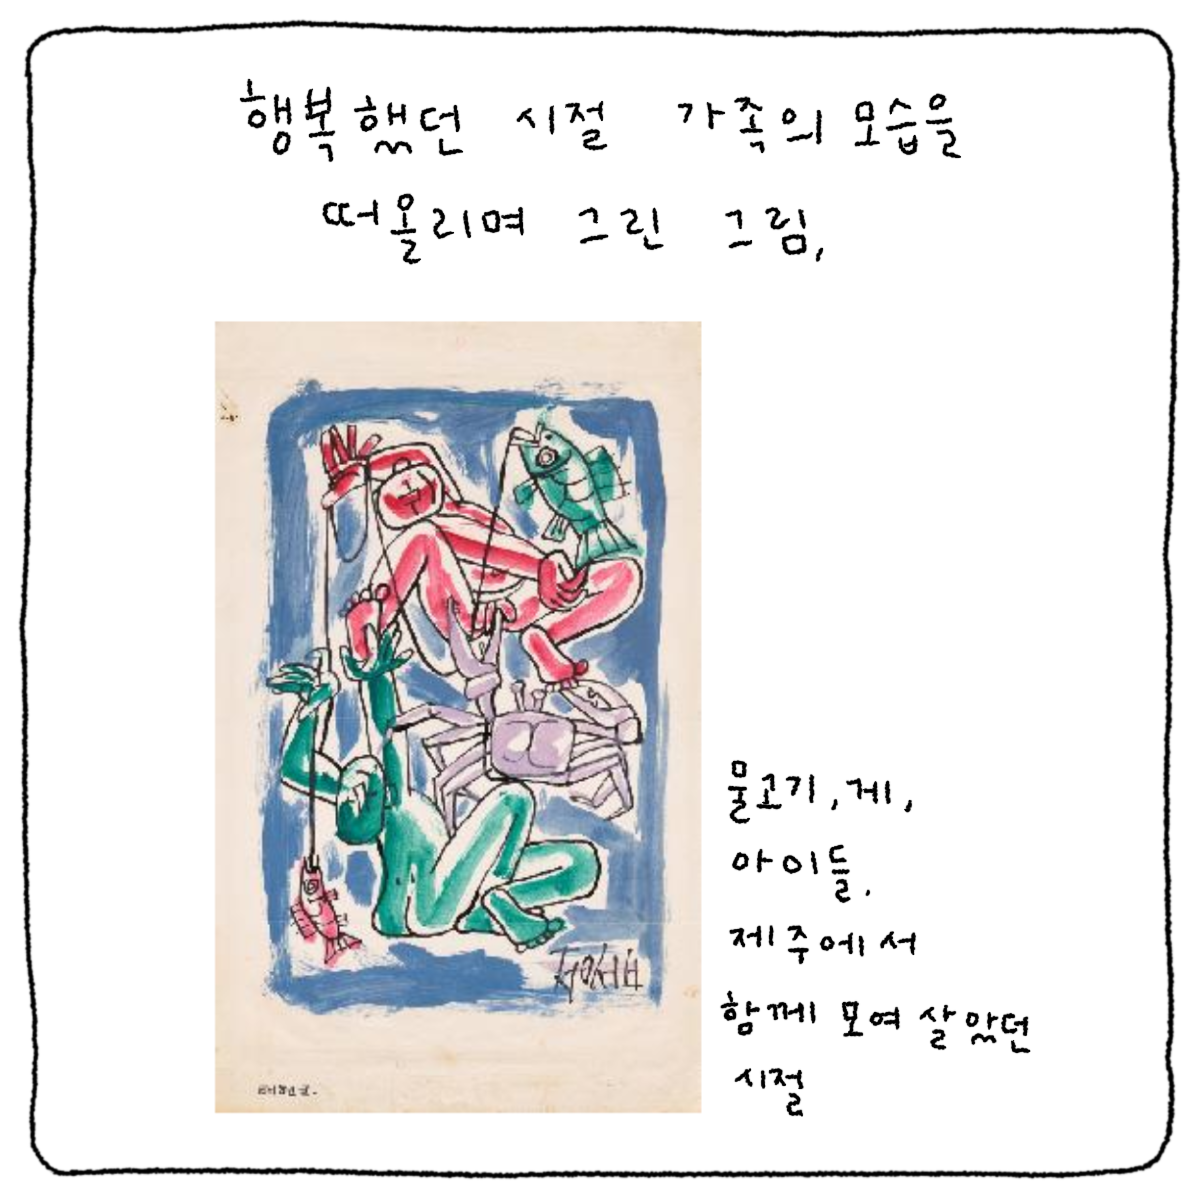 행복했던 시절 가족의 모습을
떠올리며 그린 그림,
물고기, 게,
아이들.
제주에서
함께 모여 살았던
시절